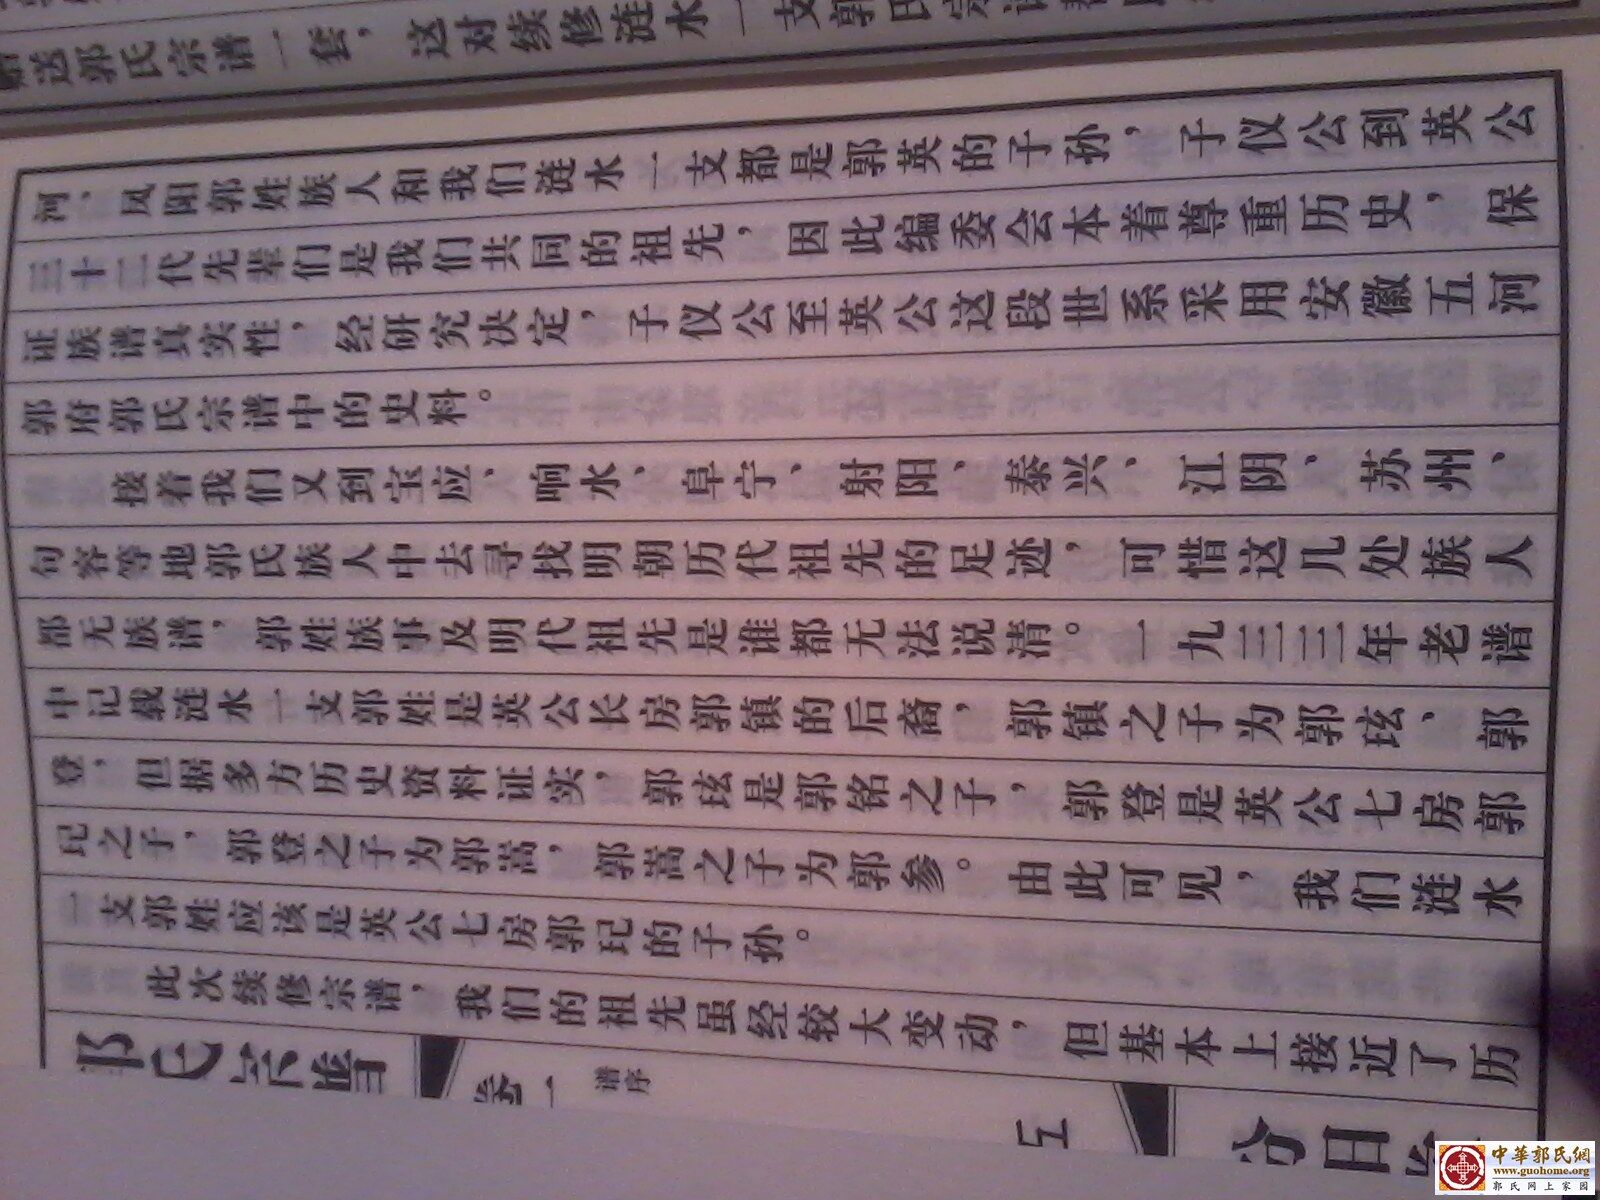 送郭氏宗谱一套，这对续修涟水一支郭氏宗
河、凤阳郭姓族人和我们涟水一支都是郭英的子孙，子仪公到英公
三十二代先辈们是我们共同的祖先，因此编委会本着尊重历史，保
证族谱真实性，经研究决定，子仪公至英公这段世系采用安徽五河
郭府郭氏宗谱中的史料。
接着我们又到宝应、响水、阜宁、射阳、泰兴、江阴、苏州、
句容等地郭氏族人中去寻找明朝历代祖先的足迹，可惜这几处族人
都无族谱，郭姓族事及明代祖先是谁都无法说清。一九三三年老谱
中记载涟水一支郭姓是英公长房郭镇的后裔，郭镇之子为郭玹、郭
登，但据多方历史资料证实，郭玹是郭铭之子，郭登是英公七房郭
玘之子，郭登之子为郭嵩，郭嵩之子为郭参。由此可见，我们涟水
一支郭姓应该是英公七房郭玘的子孙。
此次续修宗谱，我们的祖先虽经较大变动，但基本上接近了历
郭氏宗谱
卷一
谱序
五
汾阳
中華郭氏網
www.guohome.org
郭氏网上家园